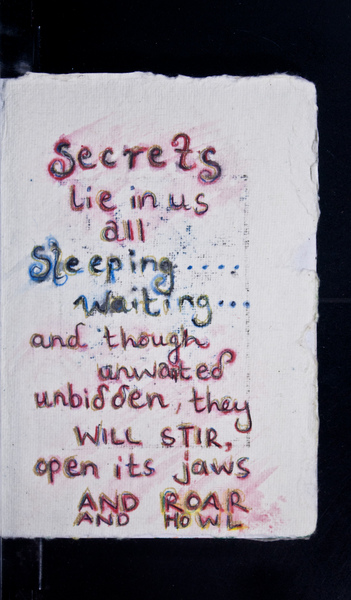 Secrets
lie in us
all
Sleeping.....
waiting...
and though
unwaited
unbidden, they
WILL STIR,
open its jaws
AND ROAR
AND HOWL